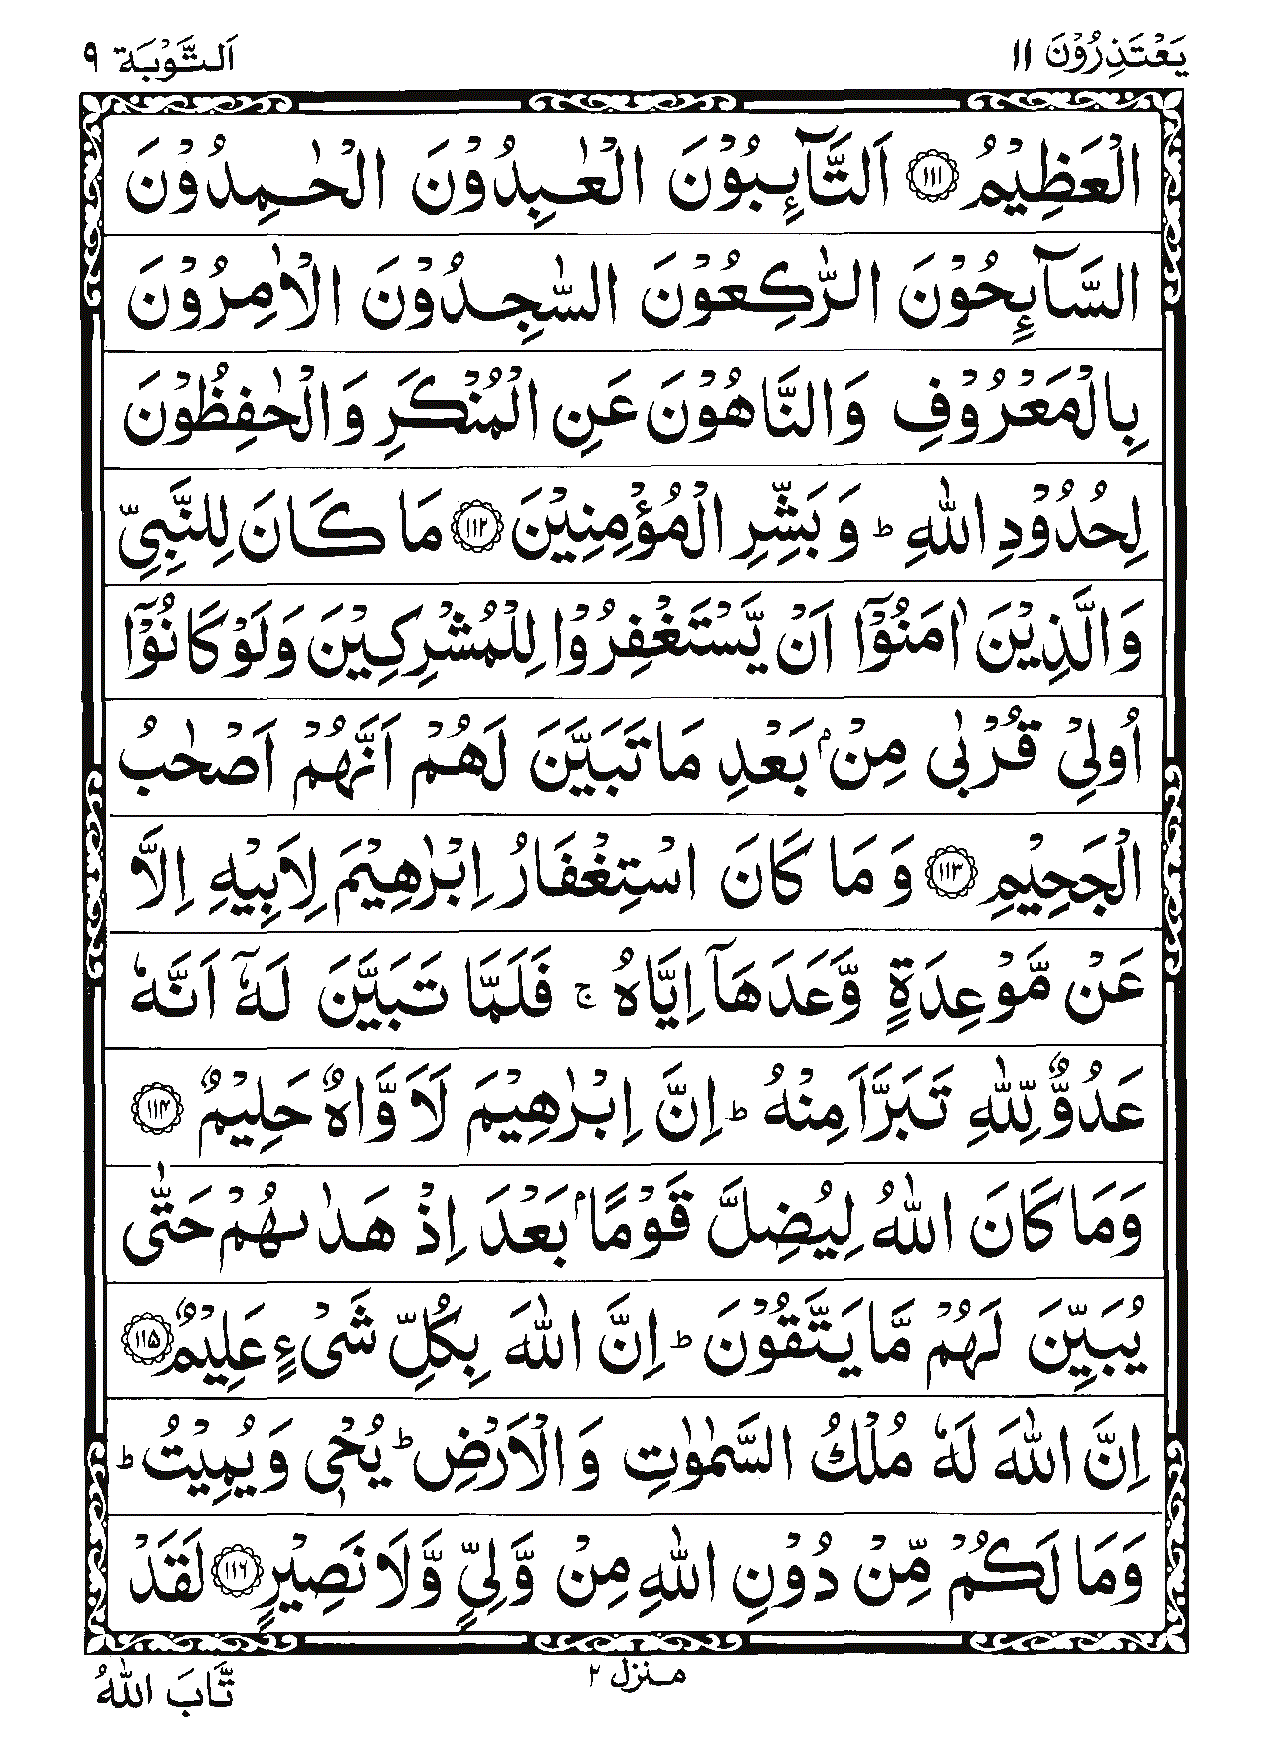 يَعْتَذِرُوْنَ ١١
اَلتَّوْبَة ٩
الْعَظِيْمُ ﴿١١١﴾ اَلتَّآئِبُوْنَ الْعٰبِدُوْنَ الْحٰمِدُوْنَ
السَّآئِحُوْنَ الرّٰكِعُوْنَ السّٰجِدُوْنَ الْاٰمِرُوْنَ
بِالْمَعْرُوْفِ وَالنَّاهُوْنَ عَنِ الْمُنْكَرِ وَالْحٰفِظُوْنَ
لِحُدُوْدِ اللّٰهِ ؕ وَ بَشِّرِ الْمُؤْمِنِيْنَ ﴿١١٢﴾ مَا كَانَ لِلنَّبِيِّ
وَالَّذِيْنَ اٰمَنُوْۤا اَنْ يَّسْتَغْفِرُوْا لِلْمُشْرِكِيْنَ وَلَوْ كَانُوْۤا
اُولِيْ قُرْبٰى مِنْۢ بَعْدِ مَا تَبَيَّنَ لَهُمْ اَنَّهُمْ اَصْحٰبُ
الْجَحِيْمِ ﴿١١٣﴾ وَ مَا كَانَ اسْتِغْفَارُ اِبْرٰهِيْمَ لِاَبِيْهِ اِلَّا
عَنْ مَّوْعِدَةٍ وَّعَدَهَاۤ اِيَّاهُ ۚ فَلَمَّا تَبَيَّنَ لَهٗۤ اَنَّهٗ
عَدُوٌّ لِّلّٰهِ تَبَرَّاَ مِنْهُ ؕ اِنَّ اِبْرٰهِيْمَ لَاَ وَّاهٌ حَلِيْمٌ ﴿١١٤﴾
وَمَا كَانَ اللّٰهُ لِيُضِلَّ قَوْمًۢا بَعْدَ اِذْ هَدٰىهُمْ حَتّٰى
يُبَيِّنَ لَهُمْ مَّا يَتَّقُوْنَ ؕ اِنَّ اللّٰهَ بِكُلِّ شَيْءٍ عَلِيْمٌ ﴿١١٥﴾
اِنَّ اللّٰهَ لَهٗ مُلْكُ السَّمٰوٰتِ وَالْاَرْضِ ؕ يُحْيٖ وَيُمِيْتُ ؕ
وَمَا لَكُمْ مِّنْ دُوْنِ اللّٰهِ مِنْ وَّلِيٍّ وَّلَا نَصِيْرٍ ﴿١١٦﴾ لَقَدْ
منزل ٢
تَّابَ اللّٰهُ